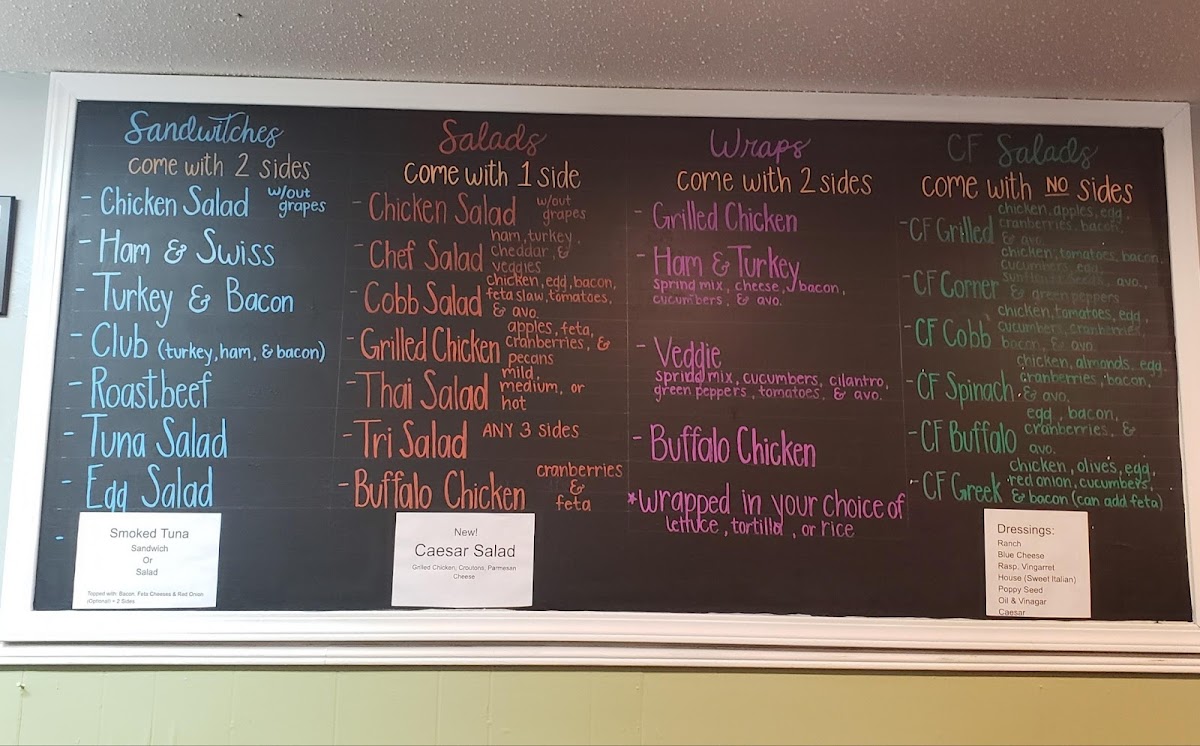 Sandwitches
come with 2 sides
- Chicken Salad w/out grapes
- Ham & Swiss
- Turkey & Bacon
- Club (turkey, ham, & bacon)
- Roastbeef
- Tuna Salad
- Egg Salad
-
Smoked Tuna
Sandwich
Or
Salad
Topped with: Bacon, Feta Cheeses & Red Onion
(Optional) = 2 Sides
Salads
come with 1 side
- Chicken Salad w/out grapes
- Chef Salad ham, turkey, cheddar, & veggies
- Cobb Salad chicken, egg, bacon, feta slaw, tomatoes, & avo.
- Grilled Chicken apples, feta, cranberries, & pecans
- Thai Salad mild, medium, or hot
- Tri Salad ANY 3 sides
- Buffalo Chicken cranberries & feta
New!
Caesar Salad
Grilled Chicken, Croutons, Parmesan
Cheese
Wraps
come with 2 sides
- Grilled Chicken
- Ham & Turkey
sprind mix, cheese, bacon,
cucumbers, & avo.
- Veggie
sprind mix, cucumbers, cilantro,
green peppers, tomatoes, & avo.
- Buffalo Chicken
*wrapped in your choice of
lettuce, tortilla, or rice
CF Salads
come with NO sides
- CF Grilled chicken, apples, egg, cranberries, bacon, & avo.
- CF Corner chicken, tomatoes, bacon, cucumbers, egg, sunflower seeds, avo., & green peppers
- CF Cobb chicken, tomatoes, egg, cucumbers, cranberries, bacon, & avo.
- CF Spinach chicken, almonds, egg, cranberries, bacon, & avo.
- CF Buffalo egg, bacon, cranberries, & avo.
- CF Greek chicken, olives, egg, red onion, cucumbers, & bacon (can add feta)
Dressings:
Ranch
Blue Cheese
Rasp. Vingarret
House (Sweet Italian)
Poppy Seed
Oil & Vinagar
Caesar